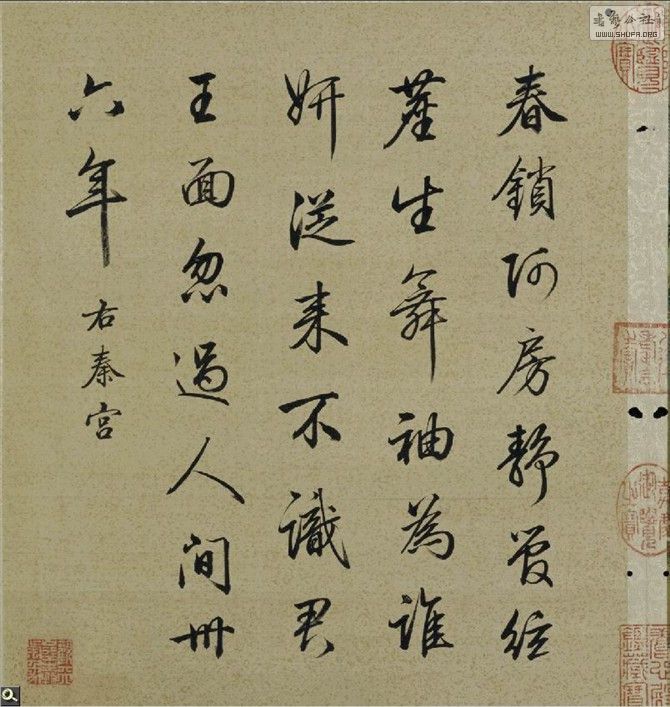 春鎖阿房靜管絃
塵生舞袖為誰
妍從來不識君
王面忽過人間卅
六年
右秦宮
WWW.SHUFA.ORG